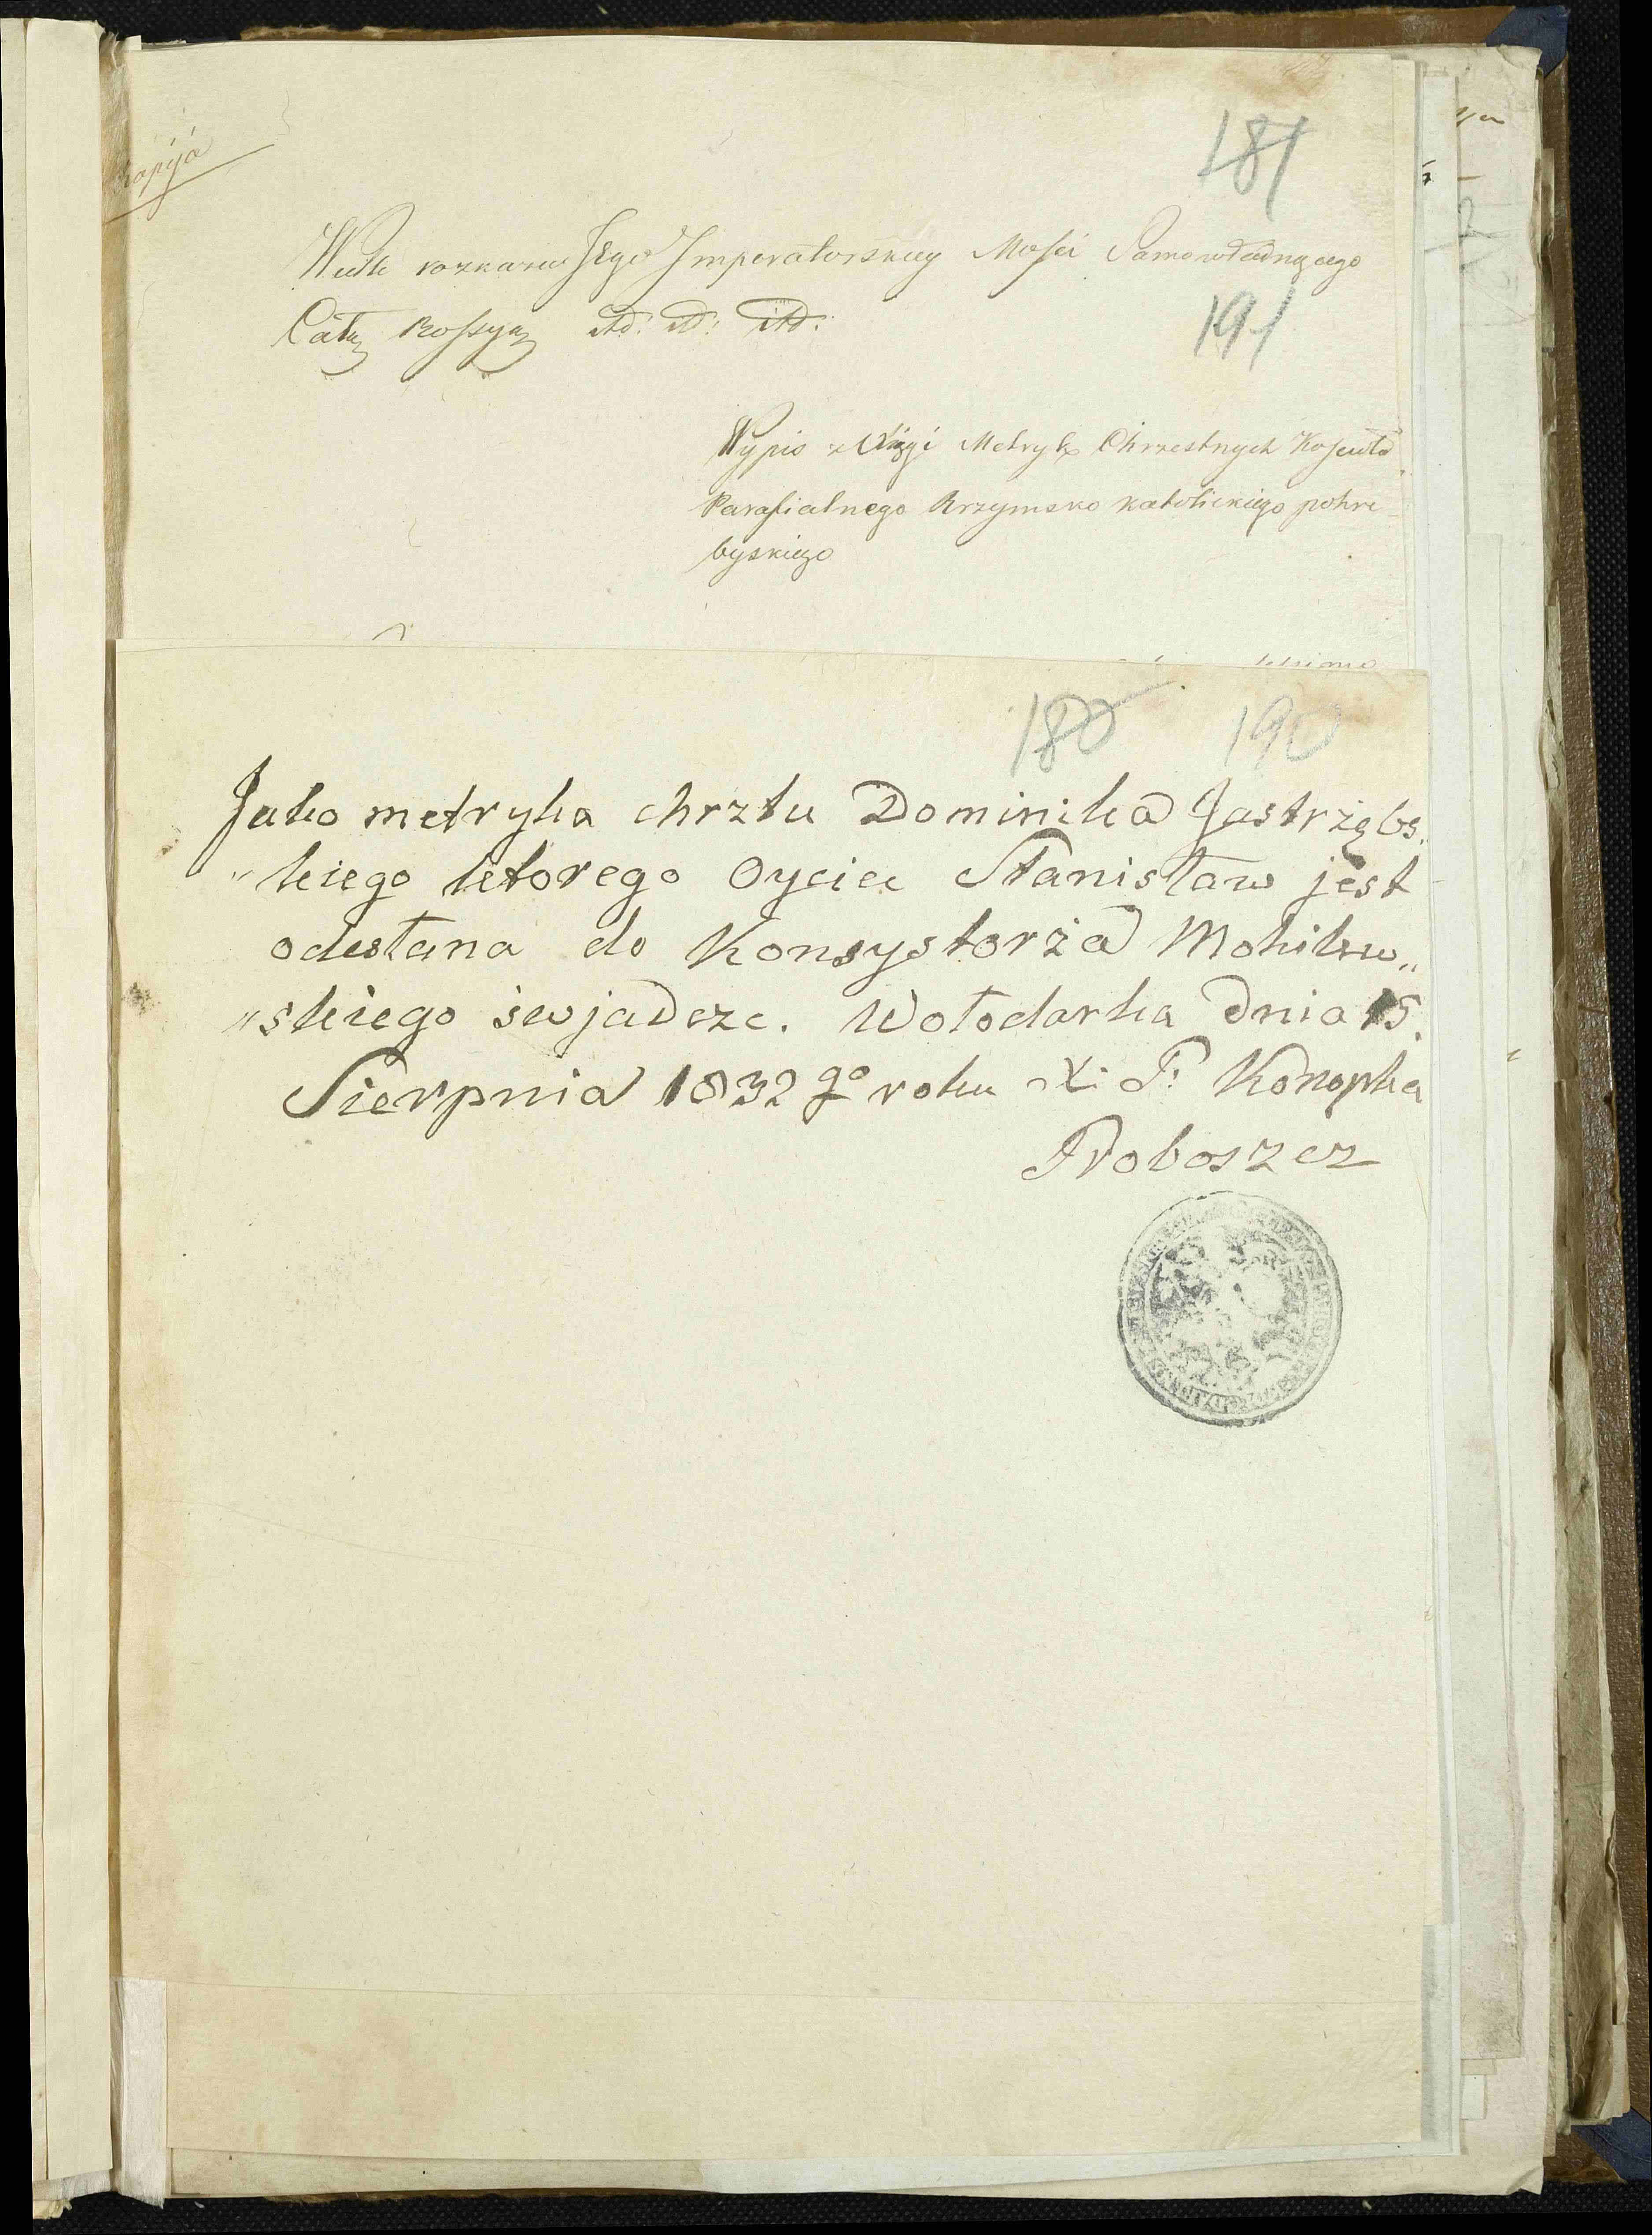 Kopija
181
Wedle rozkazu Jego Imperatorskiey Mości Samowładnącego
Całą Rossyą itd: itd: itd:
191
Wypis z Xięgi Metryk Chrzestnych Kościoła
Parafialnego Rzymsko katolickiego pohre
byskiego
180 190
Jako metryka chrztu Dominika Jastrzębs„
„kiego ktorego Oyciec Stanisław jest
odesłana do Konsystorża Mohilew„
„skiego świjadcze. Wołodarka dnia 15.
Sierpnia 1832 go roku X: P: Konopka
Proboszcz